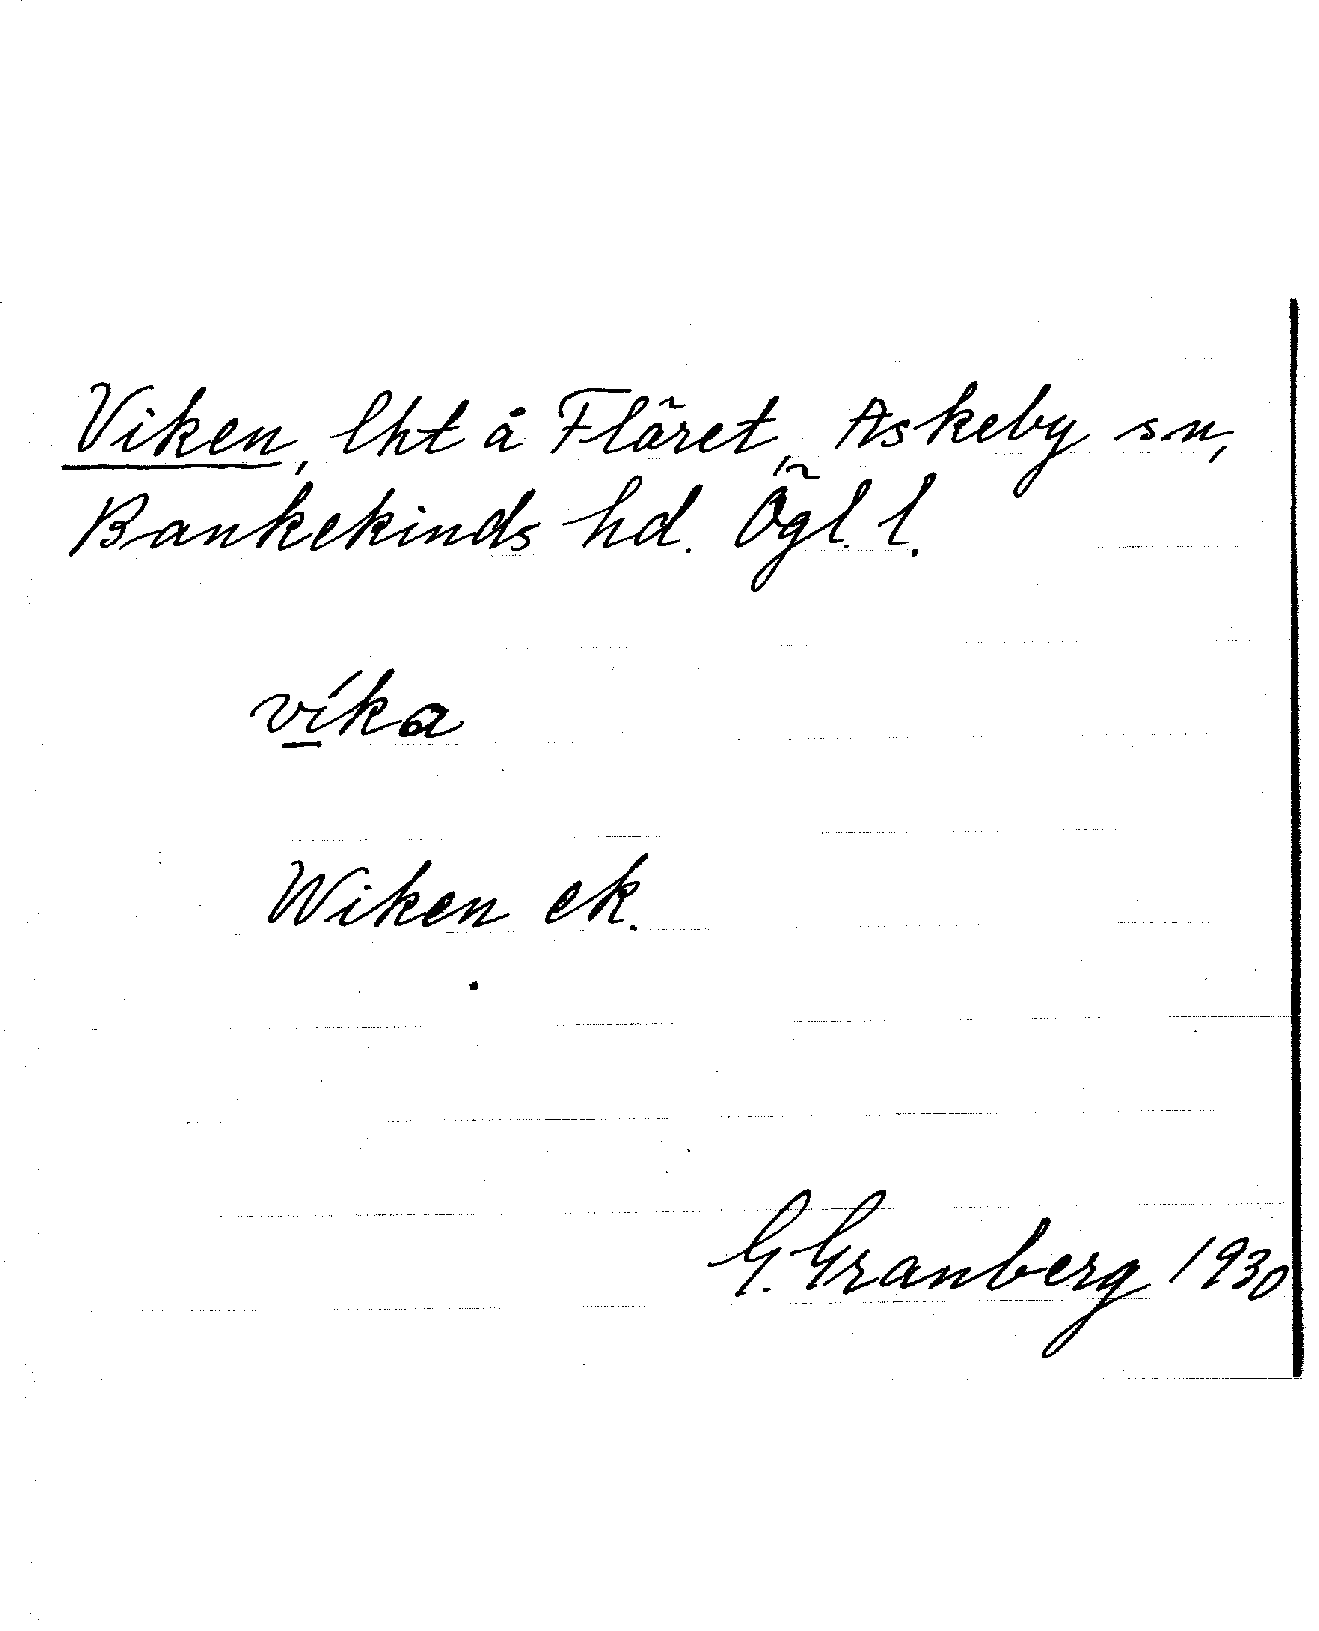 Viken, lht å Fläret, Askeby sn,
Bankekinds hd. Ögl. l.
víka
Wiken ek.
G. Granberg 1930